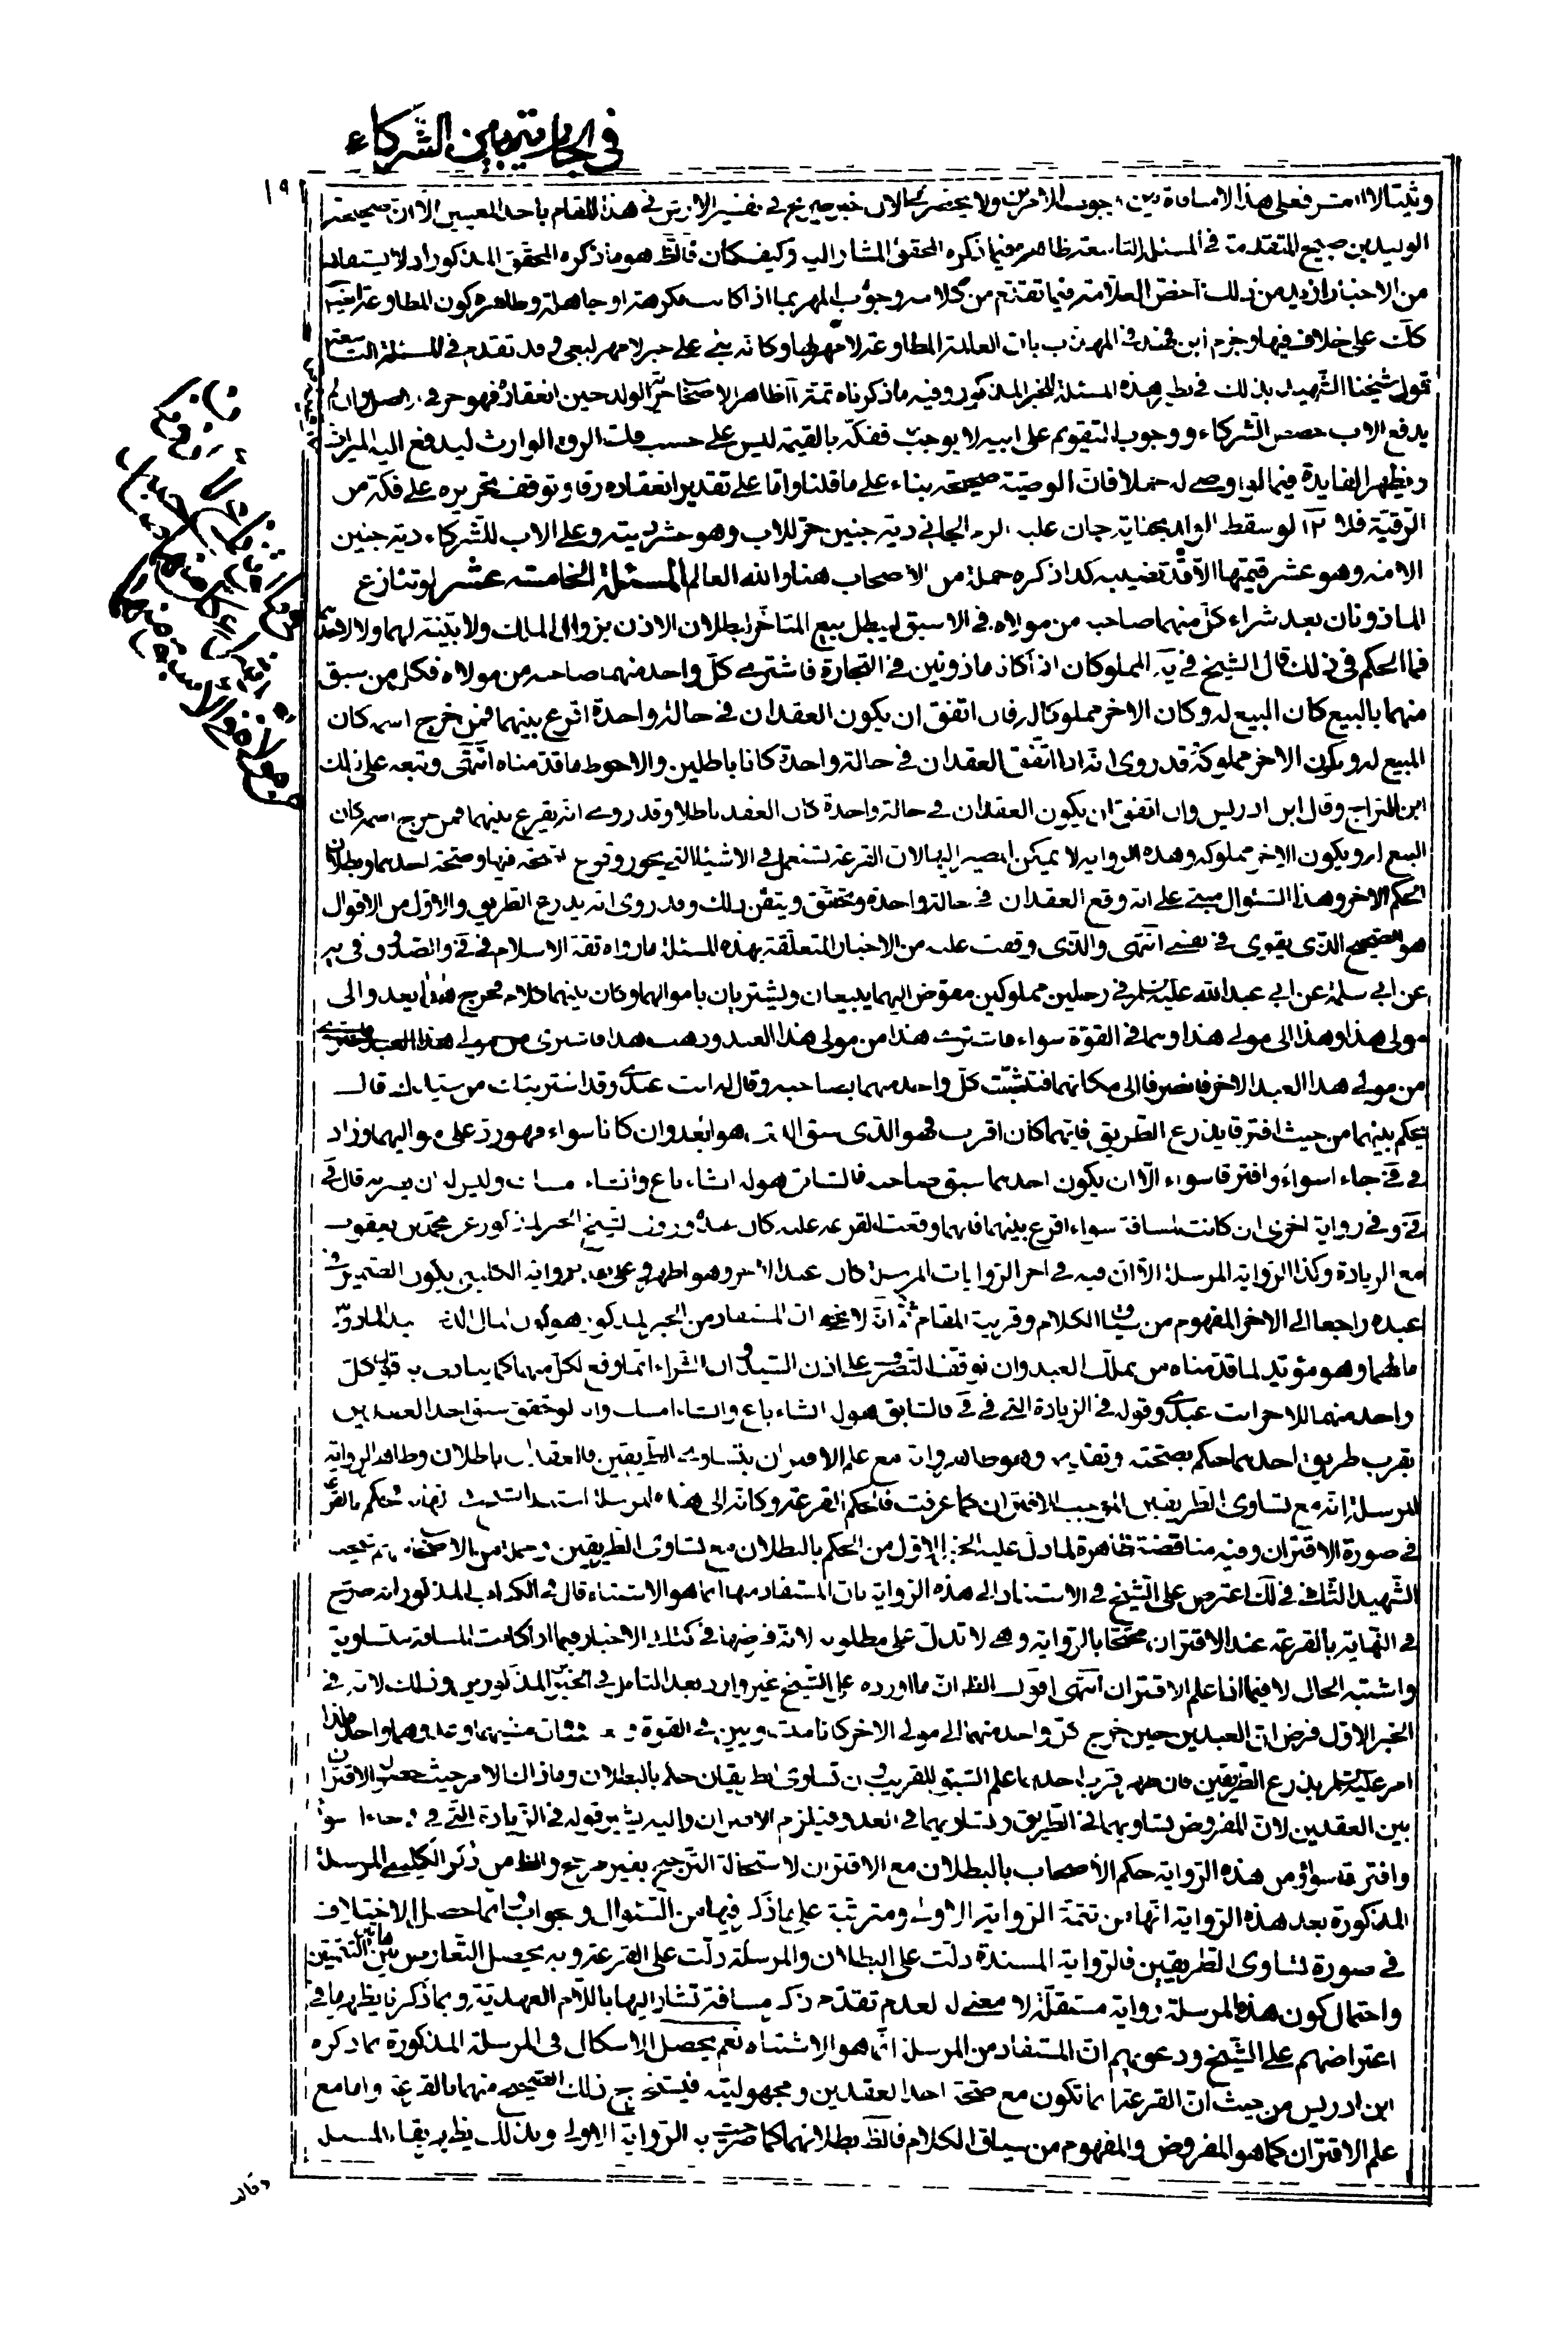 في الجارية بين الشركاء
فعلى هذا لا منافاة ولا يحضرني الان خبر صريح في تفسير الارش في هذا المقام باحد المعنيين الا ان صحيحة
الوليد بن صبيح المتقدمة في المسئلة التاسعة ظاهرة فيما ذكره المحقق المشار اليه وكيف كان فالظ هو ما ذكره المحقق المذكور اذ لا يستفاد
من الاخبار ازيد من ذلك فيما تقدم من كلامه وجوب المهر بما اذا كانت مكرهة او جاهلة وظاهره كون المطاوعة
كك على خلاف فيها وجزم ابن فهد في المهذب بان العالمة المطاوعة لا مهر لها وكانه بنى على خبر لا مهر لبغي وقد تقدم في المسئلة التاسعة
قول شيخنا الشهيد بذلك في نظير هذه المسئلة للخبر المذكور وفيه ما ذكرناه تمة ظاهر الاصحاب حرية الولد حين انعقاده فهو حر في الاصل وان لم
يدفع الاب حصص الشركاء ووجوب التقويم على ابيه لا يوجب ففكه بالقيمة ليس على حسب فك الرق الوارث ليدفع اليه الميراث
ويظهر الفايدة فيما لو اوصى له حملا فان الوصية صحيحة بناء على ما قلنا واما على تقدير انعقاده رقا وتوقف تحريره على فكه من
الرقية فلا لو سقط الولد بجناية جان عليه الجاني دية جنين حر للاب وهو عشر ديته وعلى الاب للشركاء دية جنين
الامة وهو عشر قيمتها الا قدر نصيبه كذا ذكره جملة من الاصحاب هنا والله العالم المسئلة الخامسة عشر لو تنازع
الماذونان بعد شراء كل منهما صاحبه من مولاه في الاسبق ليبطل بيع المتاخر لبطلان الاذن بزوال الملك ولا بينة لهما ولا لاحدهما
فما الحكم في ذلك قال الشيخ في ية المملوكان اذا كانا ماذونين في التجارة فاشترى كل واحد منهما صاحبه من مولاه فكل من سبق
منهما بالبيع كان البيع له وكان الاخر مملوكا له فان اتفق ان يكون العقدان في حالة واحدة اقرع بينهما فمن خرج اسمه كان
المبيع له ويكون الاخر مملوكه وقد روى انه اذا اتفق العقدان في حالة واحدة كانا باطلين والاحوط ما قدمناه انتهى وتبعه على ذلك
ابن البراج وقال ابن ادريس وان اتفق ان يكون العقدان في حالة واحدة كان العقد باطلا وقد روى انه يقرع بينهما فمن خرج اسمه كان
البيع له ويكون الاخر مملوكه وهذه الرواية لا يمكن المصير اليها لان القرعة تستعمل في الاشياء التي يجوز وقوع الصحة فيها وصحة احدهما وبطلان
الحكم الاخر وهذا السئوال مبني على انه وقع العقدان في حالة واحدة وتحقق ويتقن ذلك وقد روى انه يذرع الطريق والاول من الاقوال
هو الصحيح الذي يقوى في نفسي انتهى والذي وقفت عليه من الاخبار المتعلقة بهذه المسئلة ما رواه ثقة الاسلام في في والصدوق في يه
عن ابي سلمة عن ابي عبد الله عليه السلم في رجلين مملوكين مفوض اليهما يبيعان ويشتريان باموالهما وكان بينهما كلام فخرج هذا يعدو الى
مولى هذا وهذا الى مولى هذا وهما في القوة سواء فاشترى هذا من مولى هذا العبد وذهب هذا فاشترى من مولى هذا العبد
من مولى هذا العبد الاخر فانصرفا الى مكانهما فتشبث كل واحد منهما بصاحبه وقال له انت عبدي وقد اشتريتك من سيدك قال
يحكم بينهما من حيث افترقا يذرع الطريق فايهما كان اقرب فهو الذي سبق الذي هو ابعد وان كانا سواء فهو رد على مواليهما وزاد
في في جاءا سواء وافترقا سواء الا ان يكون احدهما سبق صاحبه فالسابق هو له ان شاء باع وان شاء امسك وليس له ان يضربه قال في
في وفي رواية اخرى ان كانت المسافة سواء اقرع بينهما فايهما وقعت القرعة عليه كان عبده وروى الشيخ الخبر المذكور عن محمد بن يعقوب
مع الزيادة وكذا الرواية المرسلة الا ان فيه في اخر الروايات المرسلة كان عبد الاخر وهو اظهر وعلى رواية الكليني يكون الضمير في
عبده راجعا الى الاخر المفهوم من سياق الكلام وقرينة المقام ثم انه لا يخفى ان المستفاد من الخبر المذكور هو كون المال الذي بيد الماذونين
مالهما وهو مؤيد لما قدمناه من تملك العبد وان توقف التصرف على اذن السيد وان الشراء انما وقع لكل منهما كما ينادى به قول كل
واحد منهما للاخر انت عبدي وقوله في الزيادة التي في في فالسابق هو له ان شاء باع وان شاء امسك وانه لو تحقق سبق احد العبدين
بقرب طريق احدهما حكم بصحته وتقديمه وهو ظاهر وانه مع علم الاقتران بتساوي الطريقين فالعقدان باطلان وظاهر الرواية
المرسلة انه مع تساوي الطريقين الموجب للاقتران كما عرفت فالحكم القرعة وكانه الى هذه المرسلة استند الشيخ في ية فحكم بالقرعة
في صورة الاقتران وفيه مناقضة ظاهرة لما دل عليه الخبر الاول من الحكم بالبطلان مع تساوي الطريقين وجملة من الاصحاب منهم شيخنا
الشهيد الثاني في لك اعترض على الشيخ في الاستناد الى هذه الرواية بان المستفاد منها انما هو الاشتباه قال في الكتاب المذكور انه صرح
في النهاية بالقرعة عند الاقتران محتجا بالرواية وهي لا تدل على مطلوبه لانه فرضها في كتاب الاخبار فيما اذا كانت المسافة متساوية
واشتبه الحال لا فيما اذا علم الاقتران انتهى اقول الظ ان ما اورده على الشيخ غير وارد بعد التامل في الخبرين المذكورين وذلك لانه في
الخبر الاول فرض ان العبدين حين خرج كل واحد منهما الى مولى الاخر كانا متساويين في القوة وان مشيهما وعدوهما واحد ولهذا
امر عليه السلم بذرع الطريقين فان ظهر قرب احدهما علم السبق للقريب وان تساوى الطريقان حكم بالبطلان وما ذاك الا من حيث حصول الاقتران
بين العقدين لان المفروض تساويهما في الطريق وتساويهما في العدو فيلزم الاقتران واليه يشير قوله في الزيادة التي في في جاءا سواء
وافترقا سواء ومن هذه الرواية حكم الاصحاب بالبطلان مع الاقتران لاستحالة الترجيح بغير مرجح والظ من ذكر الكليني المرسلة
المذكورة بعد هذه الرواية انها من تتمة الرواية الاولى ومترتبة على ما ذكر فيها من السئوال وجوابه وانما حصل الاختلاف
في صورة تساوى الطريقين فالرواية المسندة دلت على البطلان والمرسلة دلت على القرعة وبه يحصل التعارض ما بين التتمتين
واحتمال كون هذه المرسلة رواية مستقلة لا معنى له لعدم تقدم ذكر مسافة تشار اليها باللام العهدية وبما ذكرنا يظهر ما في
اعتراضهم على الشيخ ودعويهم ان المستفاد من المرسلة انما هو الاشتباه نعم يحصل الاشكال في المرسلة المذكورة بما ذكره
ابن ادريس من حيث ان القرعة انما تكون مع صحة احد العقدين ومجهوليته فيستخرج ذلك الصحيح منهما بالقرعة واما مع
علم الاقتران كما هو المفروض والمفهوم من سياق الكلام فالظ بطلانهما كما صرحت به الرواية الاولى وبذلك يظهر بقاء المسئلة
وقال